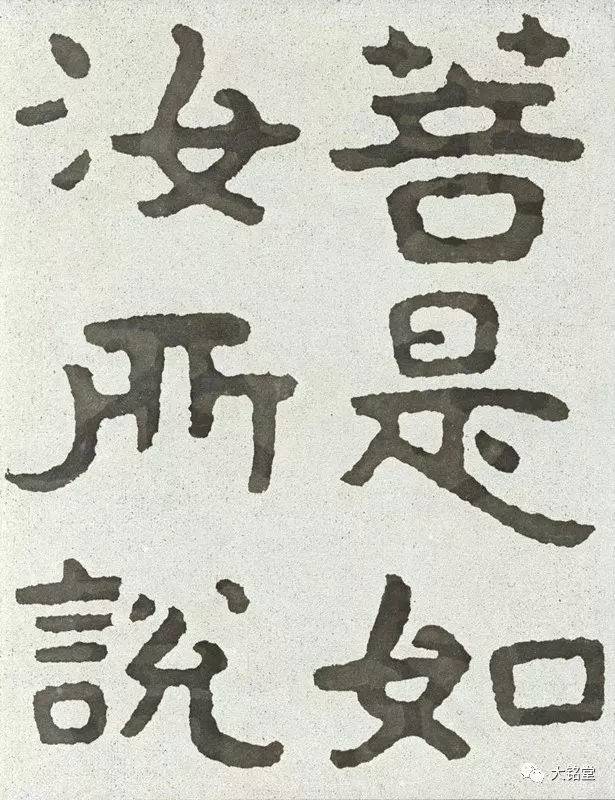 菩是如
汝所說
大铭堂